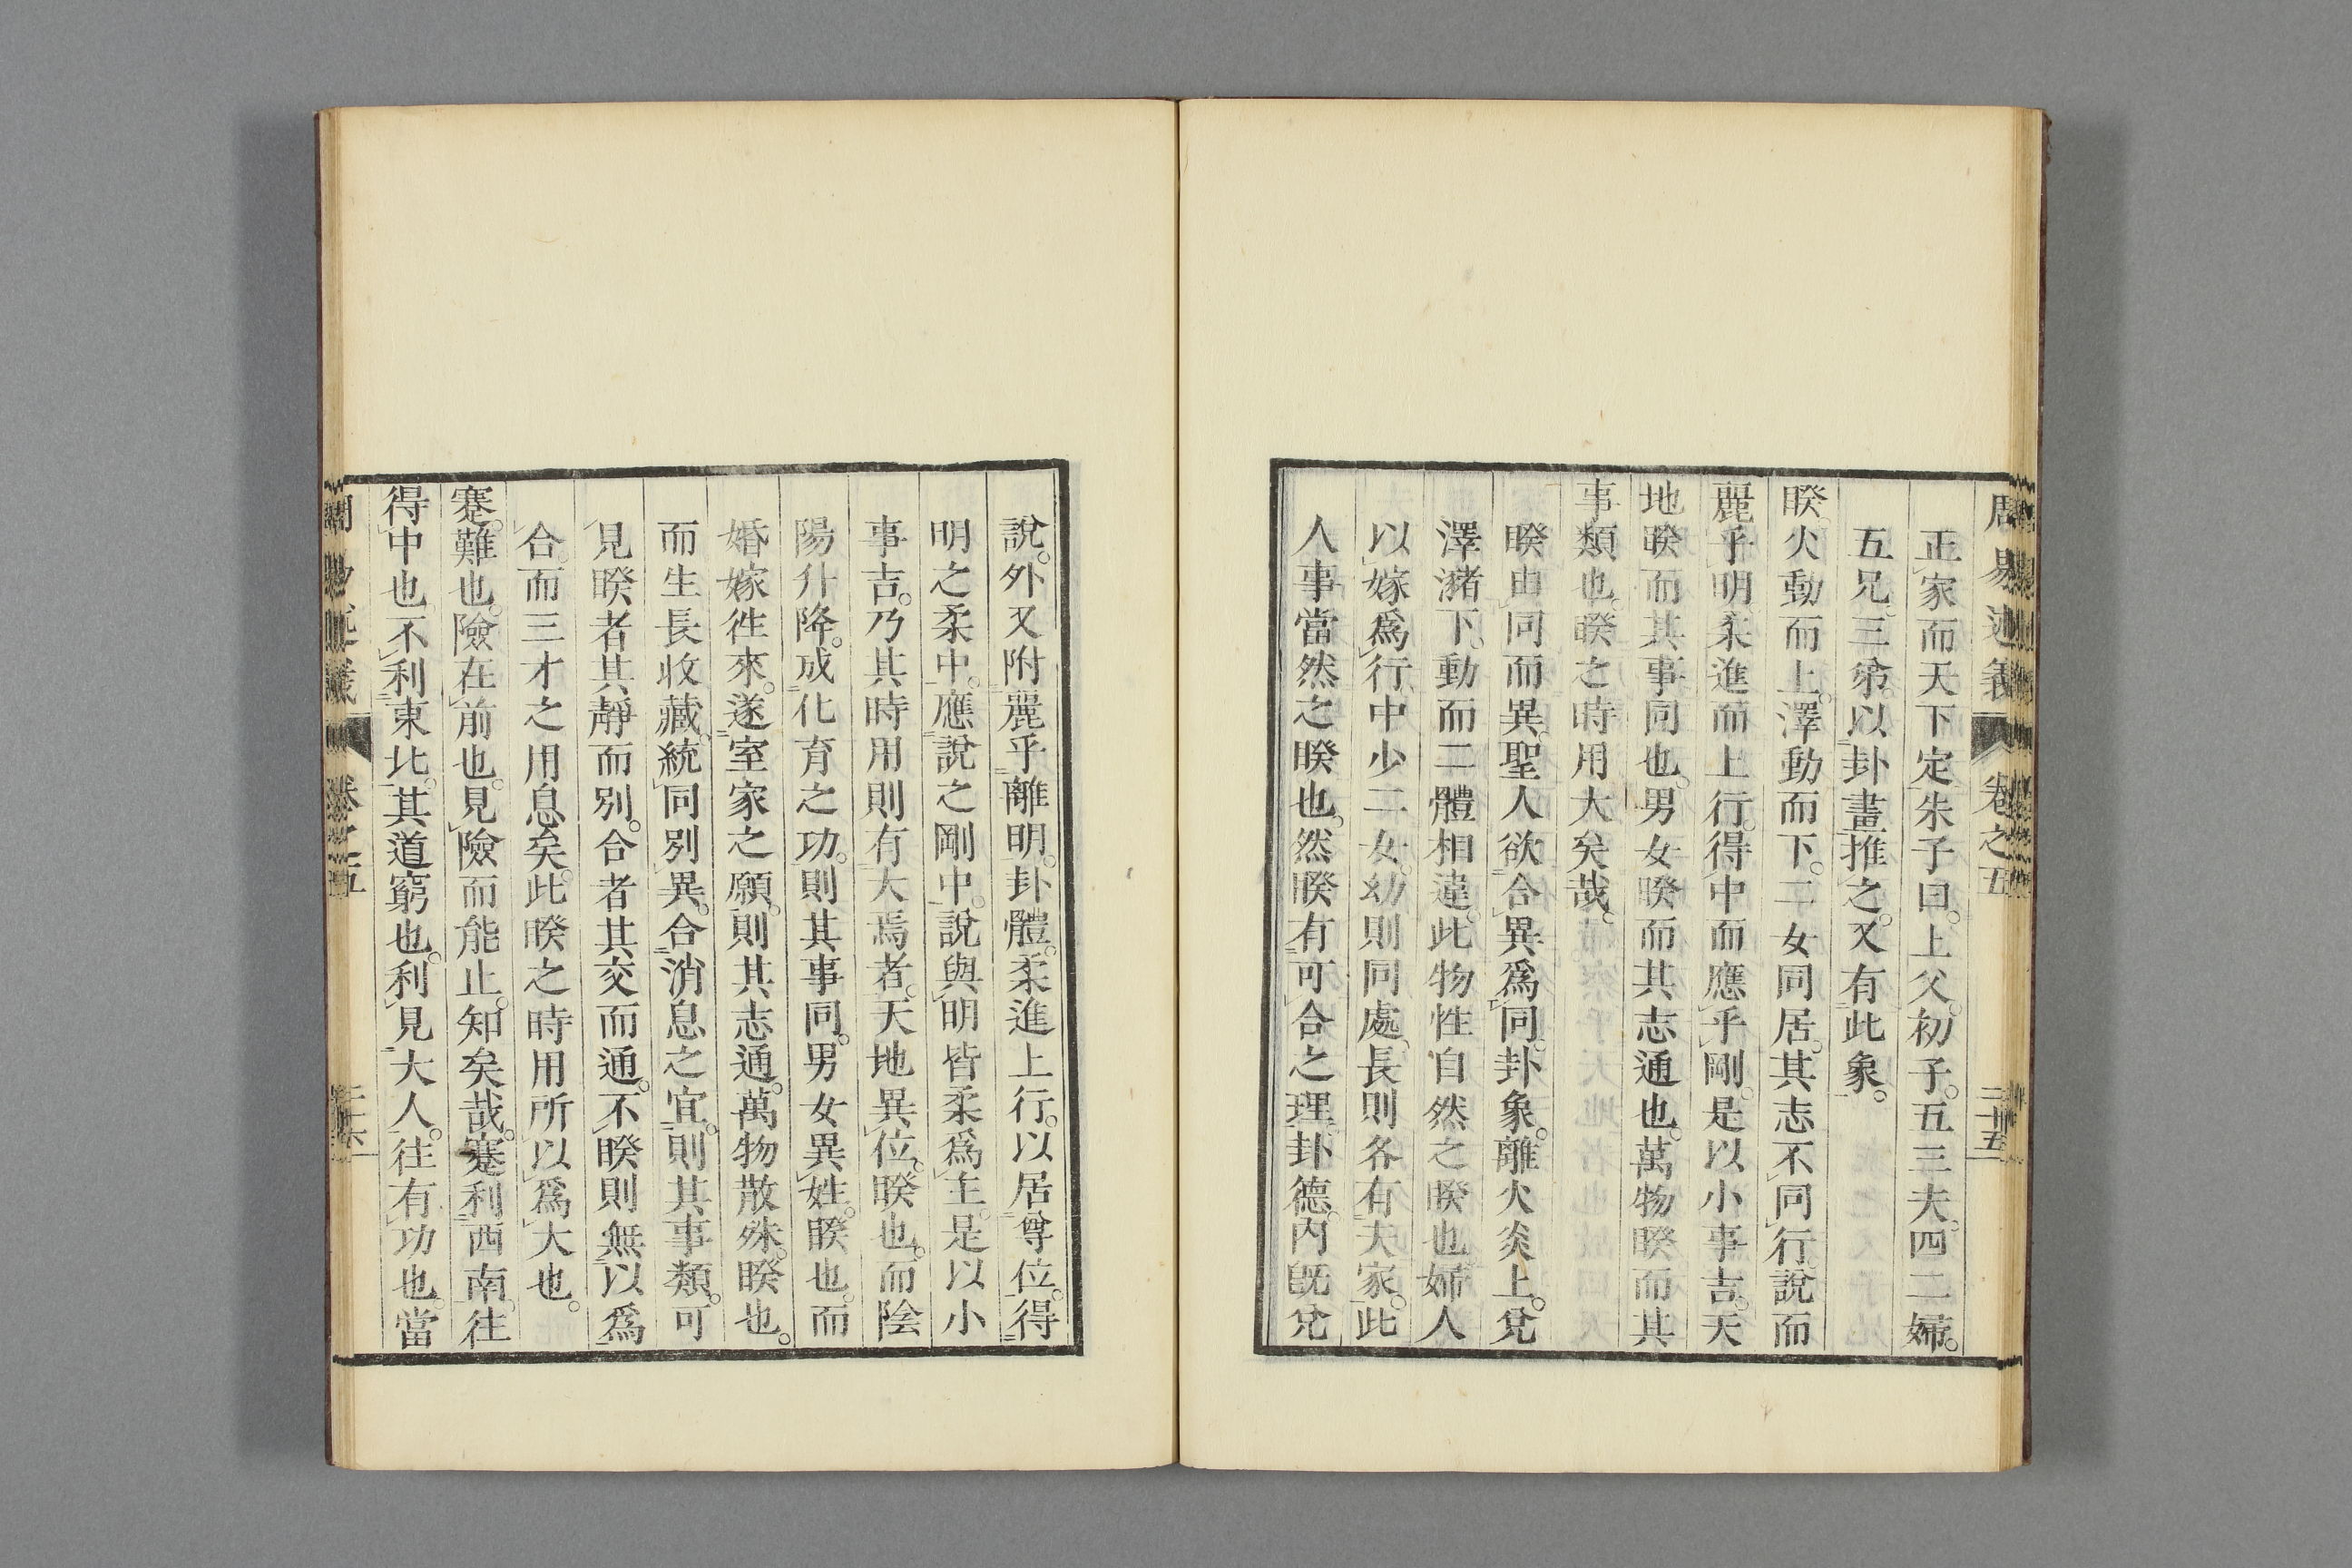 周易述義 卷之五 二十五
正家而天下定朱子曰。上父。初子。五三夫。四二婦。
五兄。三弟。以卦畫推之。又有此象。
睽。火動而上。澤動而下。二女同居。其志不同行。說而
麗乎明。柔進而上行。得中而應乎剛。是以小事吉。天
地睽而其事同也。男女睽而其志通也。萬物睽而其
事類也。睽之時用大矣哉。
睽由同而異。聖人欲合異爲同。卦象。離火炎上。兌
澤瀦下。動而二體相違。此物性自然之睽也。婦人
以嫁爲行。中少二女。幼則同處。長則各有夫家。此
人事當然之睽也。然睽有可合之理。卦德。內旣兌
說。外又附麗乎離明。卦體。柔進上行。以居尊位。得
明之柔中。應說之剛中。說與明皆柔爲主。是以小
事吉。乃其時用則有大焉者。天地異位。睽也。而陰
陽升降。成化育之功。則其事同。男女異姓。睽也。而
婚嫁徃來。遂室家之願。則其志通。萬物散殊。睽也。
而生長收藏。統同別異。合消息之宜。則其事類。可
見睽者其靜而別。合者其交而通。不睽則無以爲
合。而三才之用息矣。此睽之時用所以爲大也。
蹇。難也。險在前也。見險而能止。知矣哉。蹇利西南。往
得中也。不利東北。其道窮也。利見大人。往有功也。當
卷之五